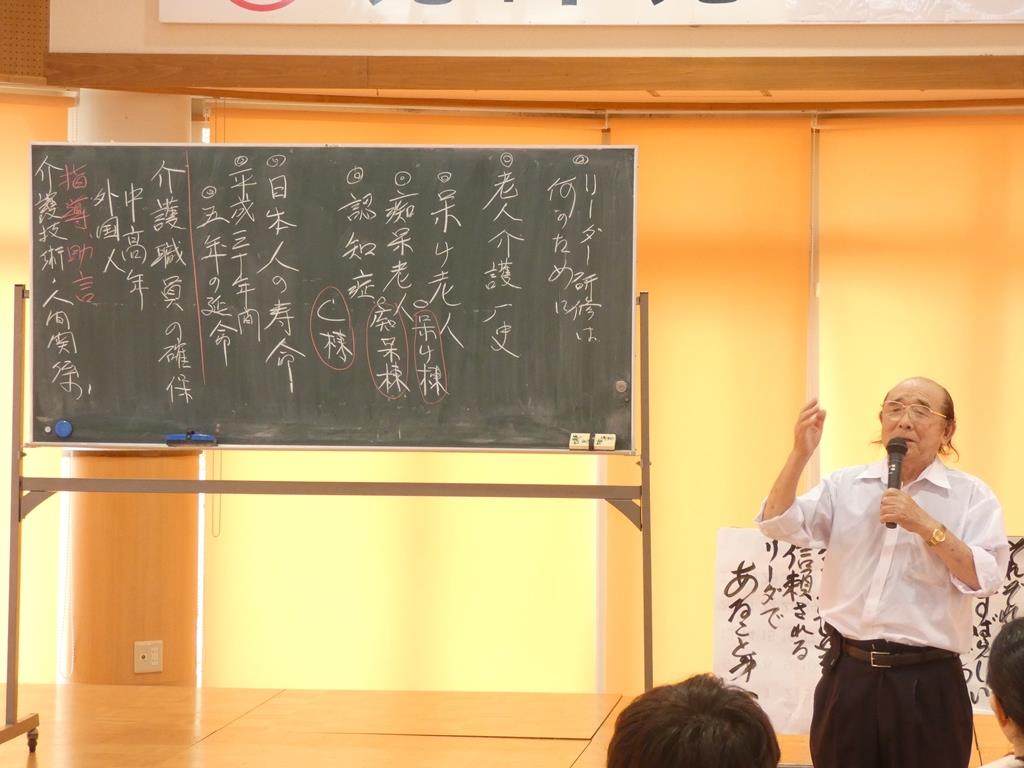 リーダー研修は
何のために
老人介護丿史
呆け老人
呆け棟
痴呆老人
痴呆棟
認知症
C棟
日本人の寿命
平成三十年間
五年の延命
介護職員の確保
中高年
外国人
指導、助言
介護技術・人間関係
信頼される
リーダで
あること
すばらしい